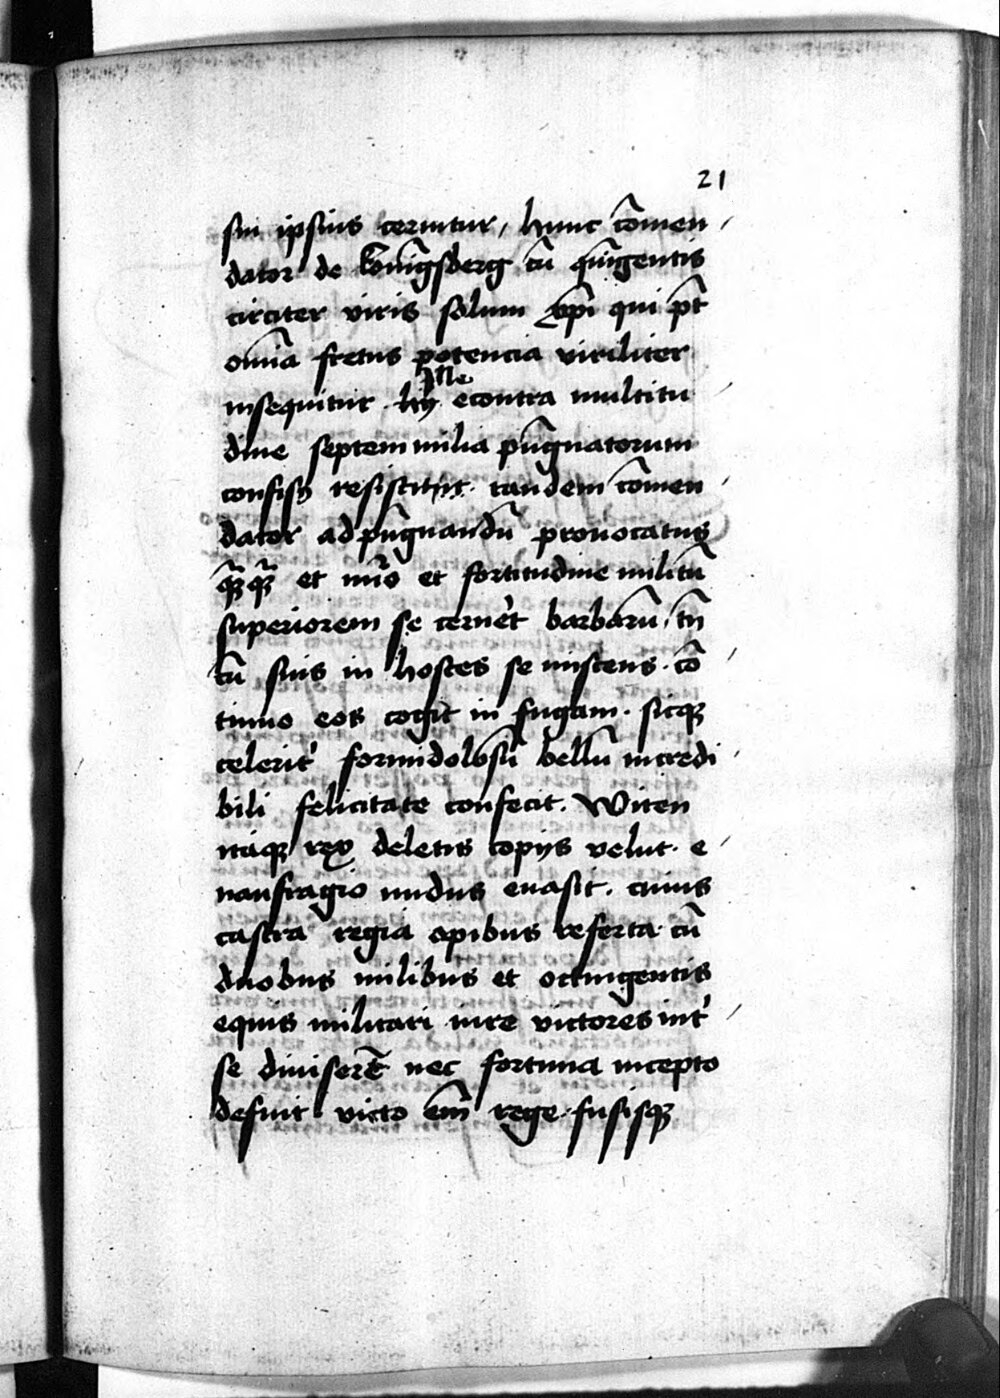 21
sui ipsius cernitur, hunc cōmen
dator de konīgsberg cū quīgentis
circiter viris solum xpi qui pt̄
omīa fretus potencia viriliter
ille
insequitur. hij econtra multitu
dine septem milia pūgnatorum
confisꝫ resistitur. tandem cōmen
dator ad pūgnandū prouocatus
q̄ꝫq̄ꝫ et nūo et fortitudine militū
superiorem se cernēt barbarū, tn̄
cū suis in hostes se miscens. cō
tinuo eos cogit in fugam. sicqꝫ
celerit' formidolosū bellū incredi
bili felicitate confecit. Witen
itaqꝫ rex deletis copijs velut. e
naufragio nudus euasit. cuius
castra regia opibus referta cū
duobus milibus et octingentis
equis militari iure victores int'
se diuiserēt nec fortuna incepto
defuit. victo em̄ rege. fusisqꝫ